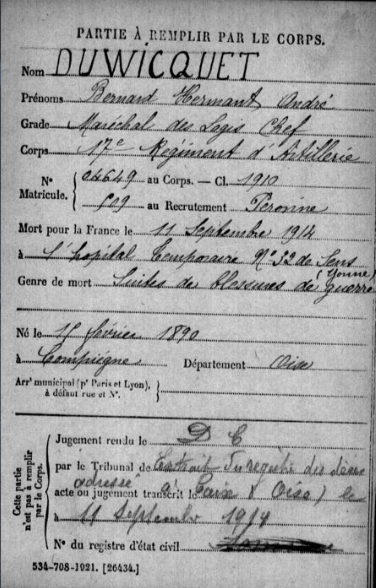 PARTIE À REMPLIR PAR LE CORPS.
Nom DUWICQUET
Prénoms Bernard Hermant André
Grade Maréchal des Logis Chef
Corps 17e Régiment d'Artillerie
N° Matricule. { 04649 au Corps. — Cl. 1910
509 au Recrutement Péronne
Mort pour la France le 11 Septembre 1914
à l'hopital temporaire N° 32 de Sens
(Yonne)
Genre de mort Suites de blessures de guerre
Né le 15 février 1890
à Compiegne Département Oise
Arrt municipal (pr Paris et Lyon), à défaut rue et N°. {
Cette partie n'est pas à remplir par le Corps.
Jugement rendu le D C
par le Tribunal de Extrait du registre des décès
adressé
acte ou jugement transcrit le à (Oise) le
à 11 Septembre 1914
N° du registre d'état civil
534-708-1921. [26434.]